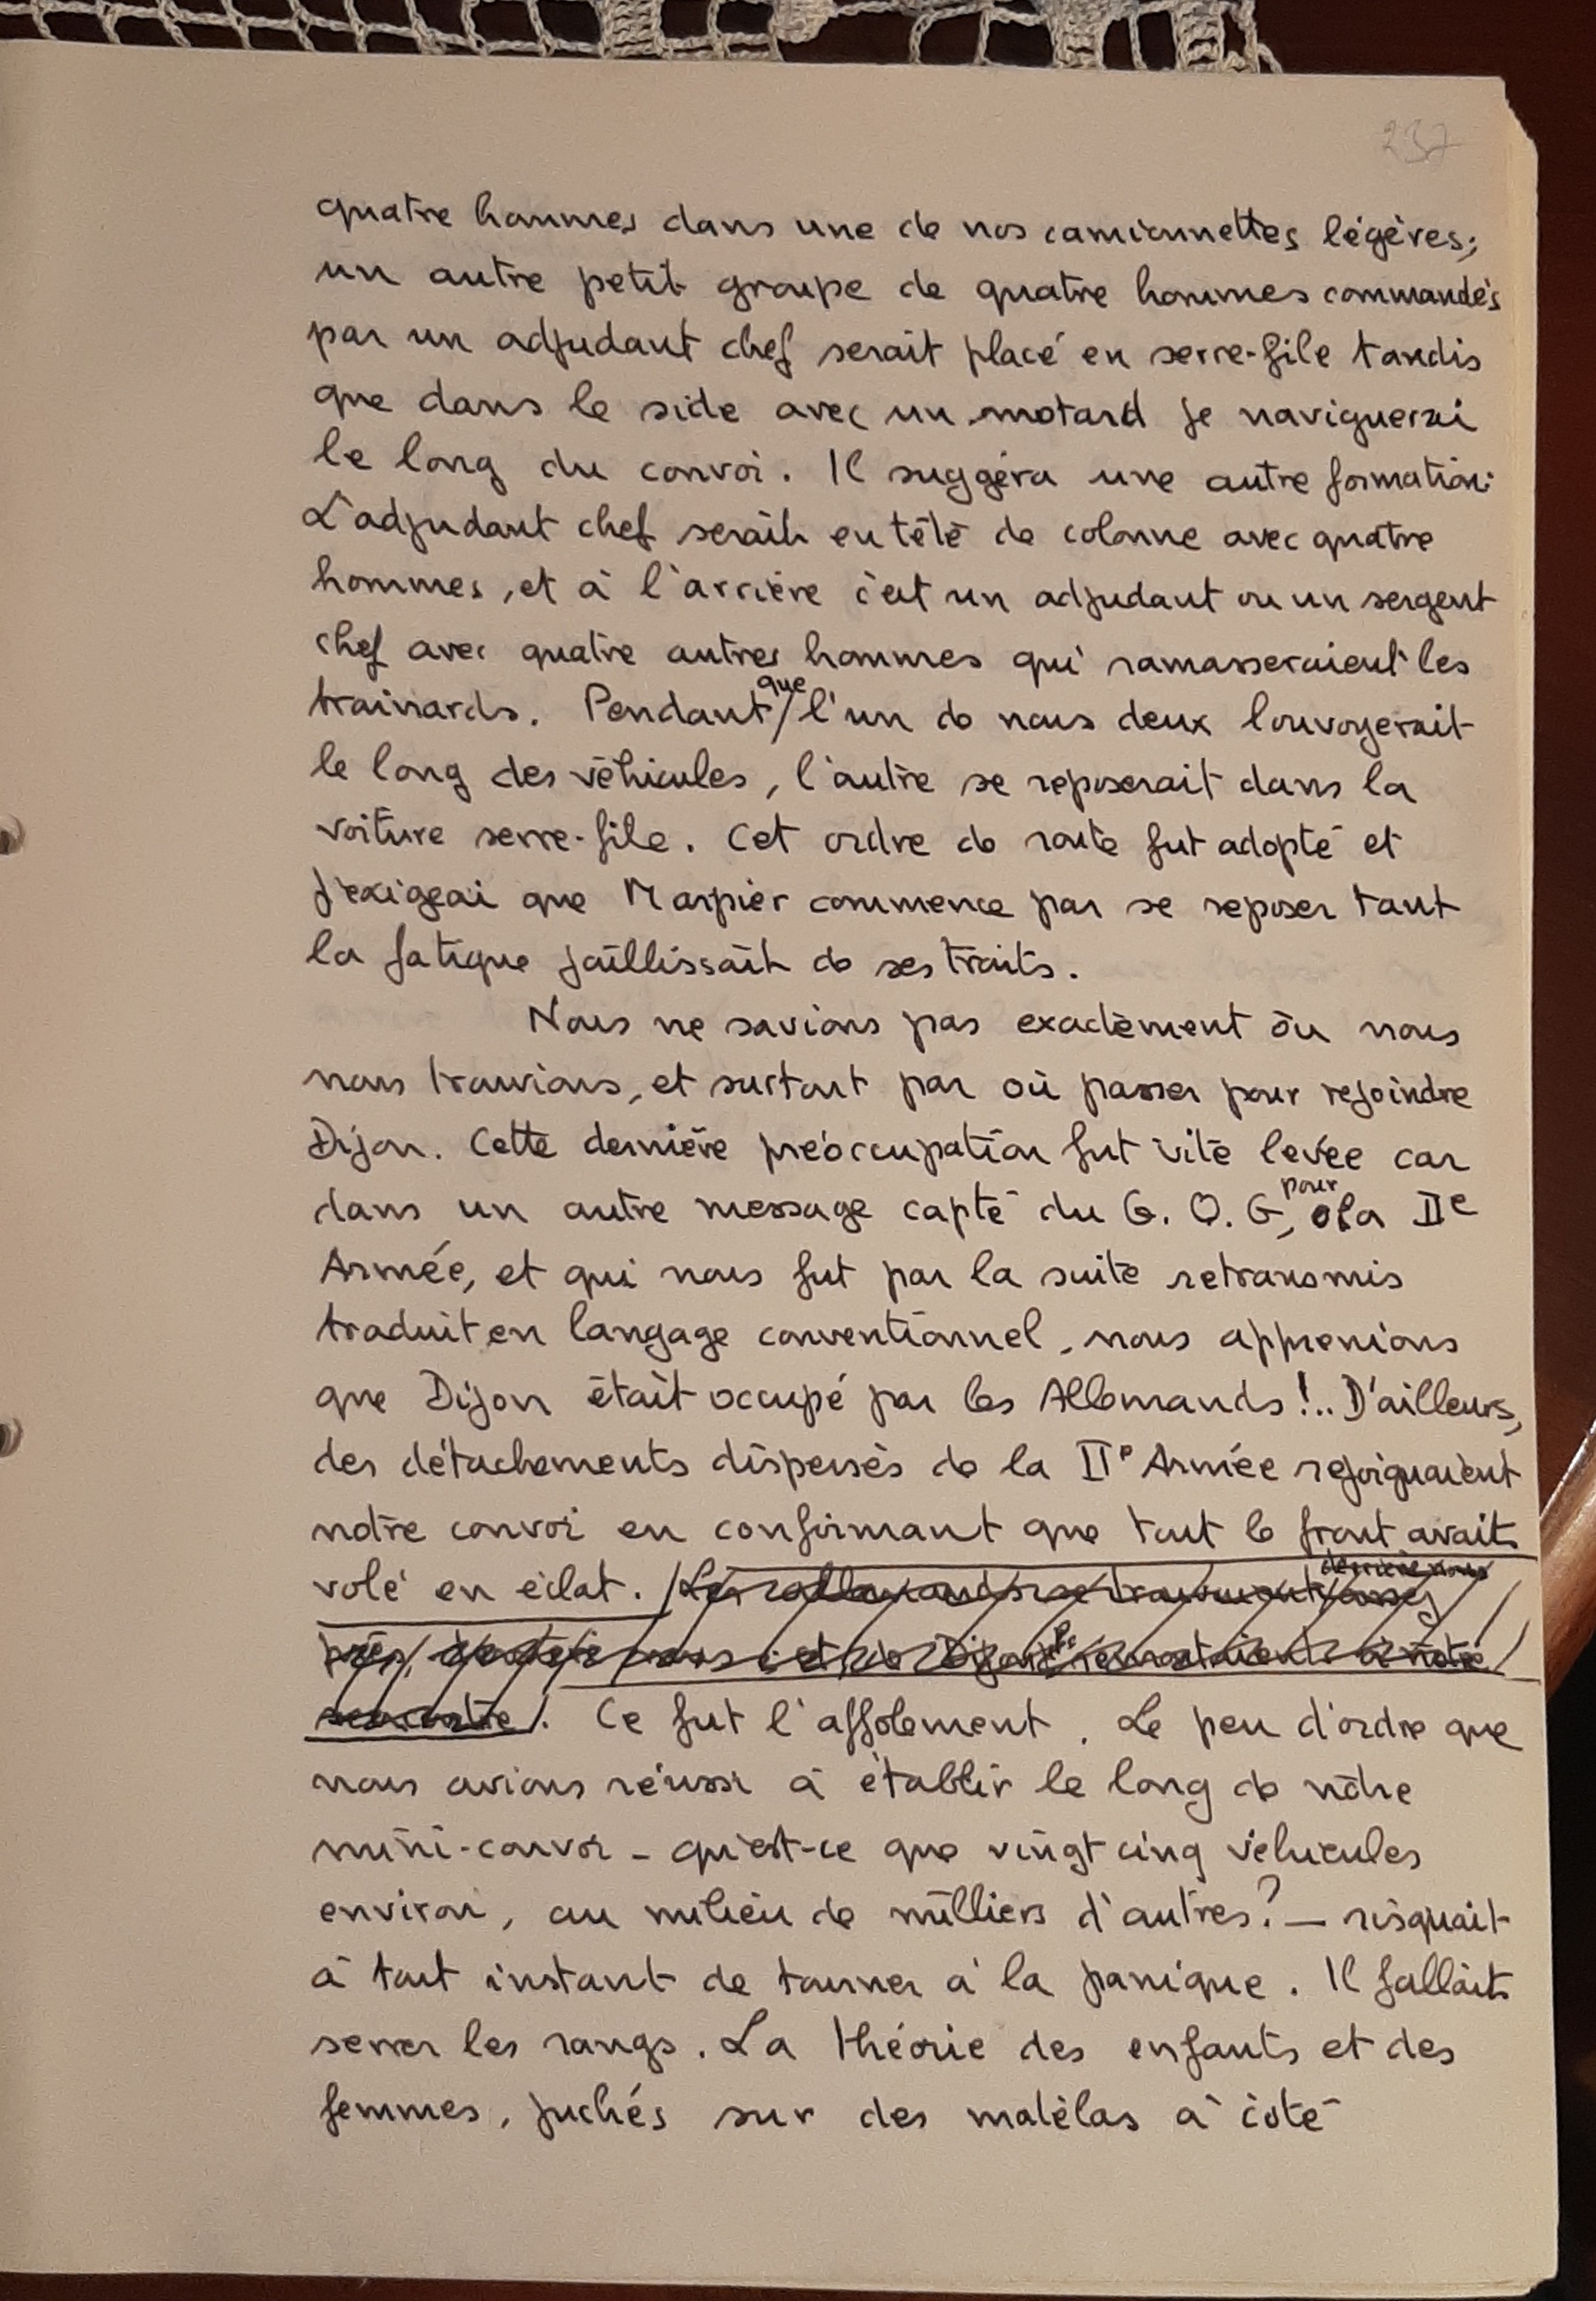 237
quatre hommes dans une de nos camionnettes légères;
un autre petit groupe de quatre hommes commandés
par un adjudant chef serait placé en serre-file tandis
que dans le side avec un motard je naviguerai
le long du convoi. Il suggéra une autre formation:
L'adjudant chef serait en tête de colonne avec quatre
hommes, et à l'arrière c'est un adjudant ou un sergent
chef avec quatre autres hommes qui ramasseraient les
trainards. Pendant que l'un de nous deux louvoyerait
le long des véhicules, l'autre se reposerait dans la
voiture serre-file. Cet ordre de route fut adopté et
j'exigeai que Marpier commence par se reposer tant
la fatigue jaillissait de ses traits.
Nous ne savions pas exactement où nous
nous trouvions, et surtout par où passer pour rejoindre
Dijon. Cette dernière préoccupation fut vite levée car
dans un autre message capté du G. Q. G, pour la IIe
Armée, et qui nous fut par la suite retransmis
traduit en langage conventionnel, nous apprenions
que Dijon était occupé par les Allemands!.. D'ailleurs,
des détachements dispersés de la IIe Armée rejoignaient
notre convoi en confirmant que tout le front avait
volé en éclat. Les allemands se trouvaient derrière nous
près, et de Dijon ils remontaient à notre
rencontre. Ce fut l'affolement. Le peu d'ordre que
nous avions réussi à établir le long de notre
mini-convoi - qu'est-ce que vingt cinq véhicules
environ, au milieu de milliers d'autres? - risquait
à tout instant de tourner à la panique. Il fallait
serrer les rangs. La théorie des enfants et des
femmes, juchés sur des matelas à côté